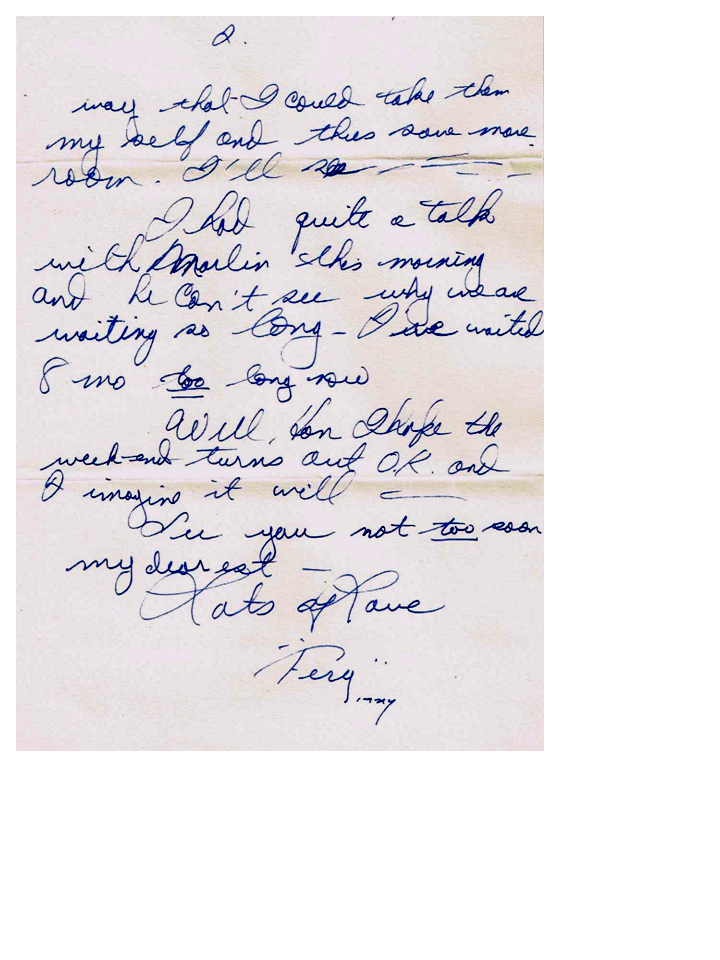 2.
way that I could take them
my self and thus save more
room. I'll see — — — —
I had quite a talk
with Marlin this morning
and he can't see why we are
waiting so long – I've waited
8 mo too long now
Well, Hon I hope the
week-end turns out O.K. and
I imagine it will —
See you not too soon
my dearest —
Lots of Love
"Ferg"